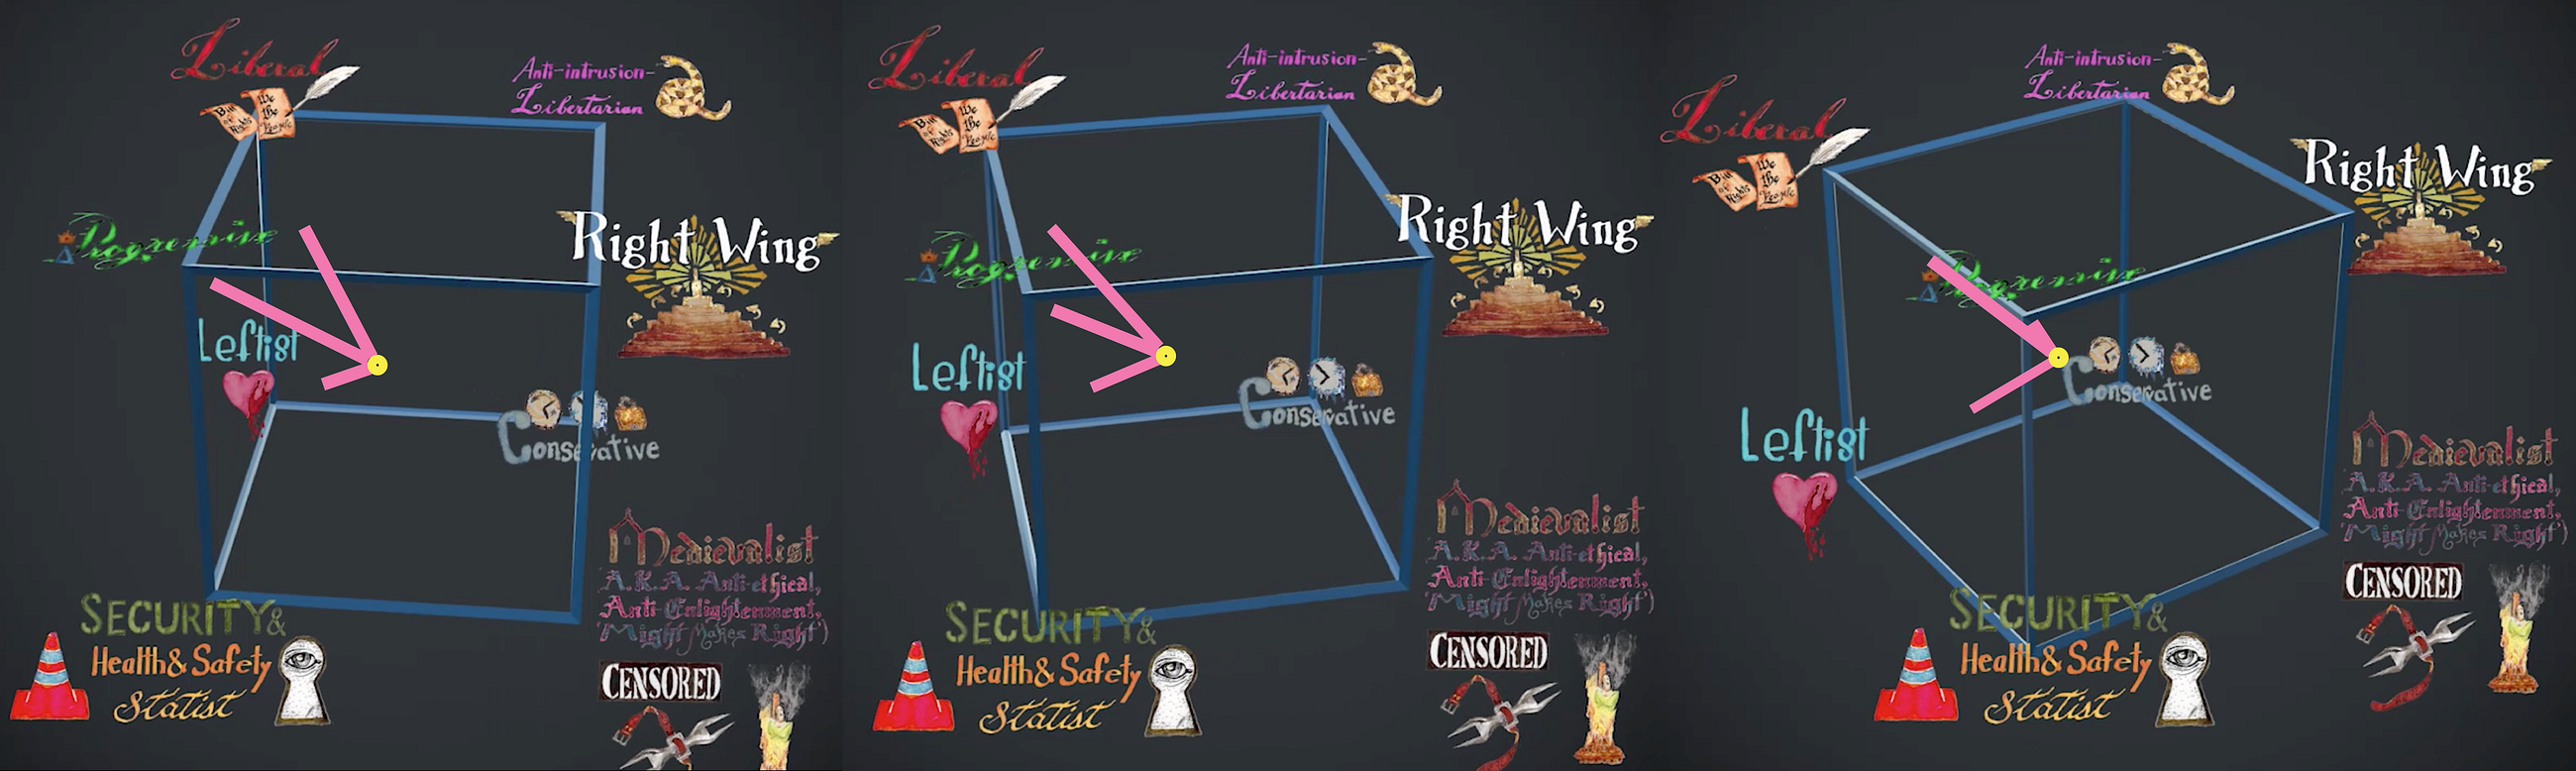 Liberal
Bill of Rights
We the People
Anti-intrusion-
Libertarian
Progressive
Right Wing
Leftist
Conservative
Medievalist
A.K.A. Anti-ethical,
Anti-Enlightenment,
'Might Makes Right')
SECURITY&
Health&Safety
Statist
CENSORED
Liberal
Bill of Rights
We the People
Anti-intrusion-
Libertarian
Progressive
Right Wing
Leftist
Conservative
Medievalist
A.K.A. Anti-ethical,
Anti-Enlightenment,
'Might Makes Right')
SECURITY&
Health&Safety
Statist
CENSORED
Liberal
Bill of Rights
We the People
Anti-intrusion-
Libertarian
Right Wing
Progressive
Conservative
Leftist
Medievalist
A.K.A. Anti-ethical,
Anti-Enlightenment,
'Might Makes Right')
SECURITY&
Health&Safety
Statist
CENSORED